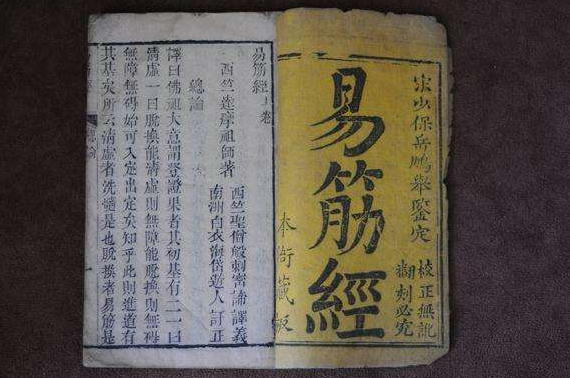 宋少保岳鵬舉鑒定
易筋經
校正無訛
翻刻必究
本衙藏板
易筋經上卷
西竺達摩祖師著
西竺聖僧般剌密諦譯義
南洲白衣海岱遊人訂正
總論
譯曰佛祖大意謂登證果者其初基有二一曰
清虛一曰脫換能清虛則無障能脫換則無礙
無障無礙始可入定出定矣知乎此則進道有
其基矣所云清虛者洗髓是也脫換者易筋是
總論